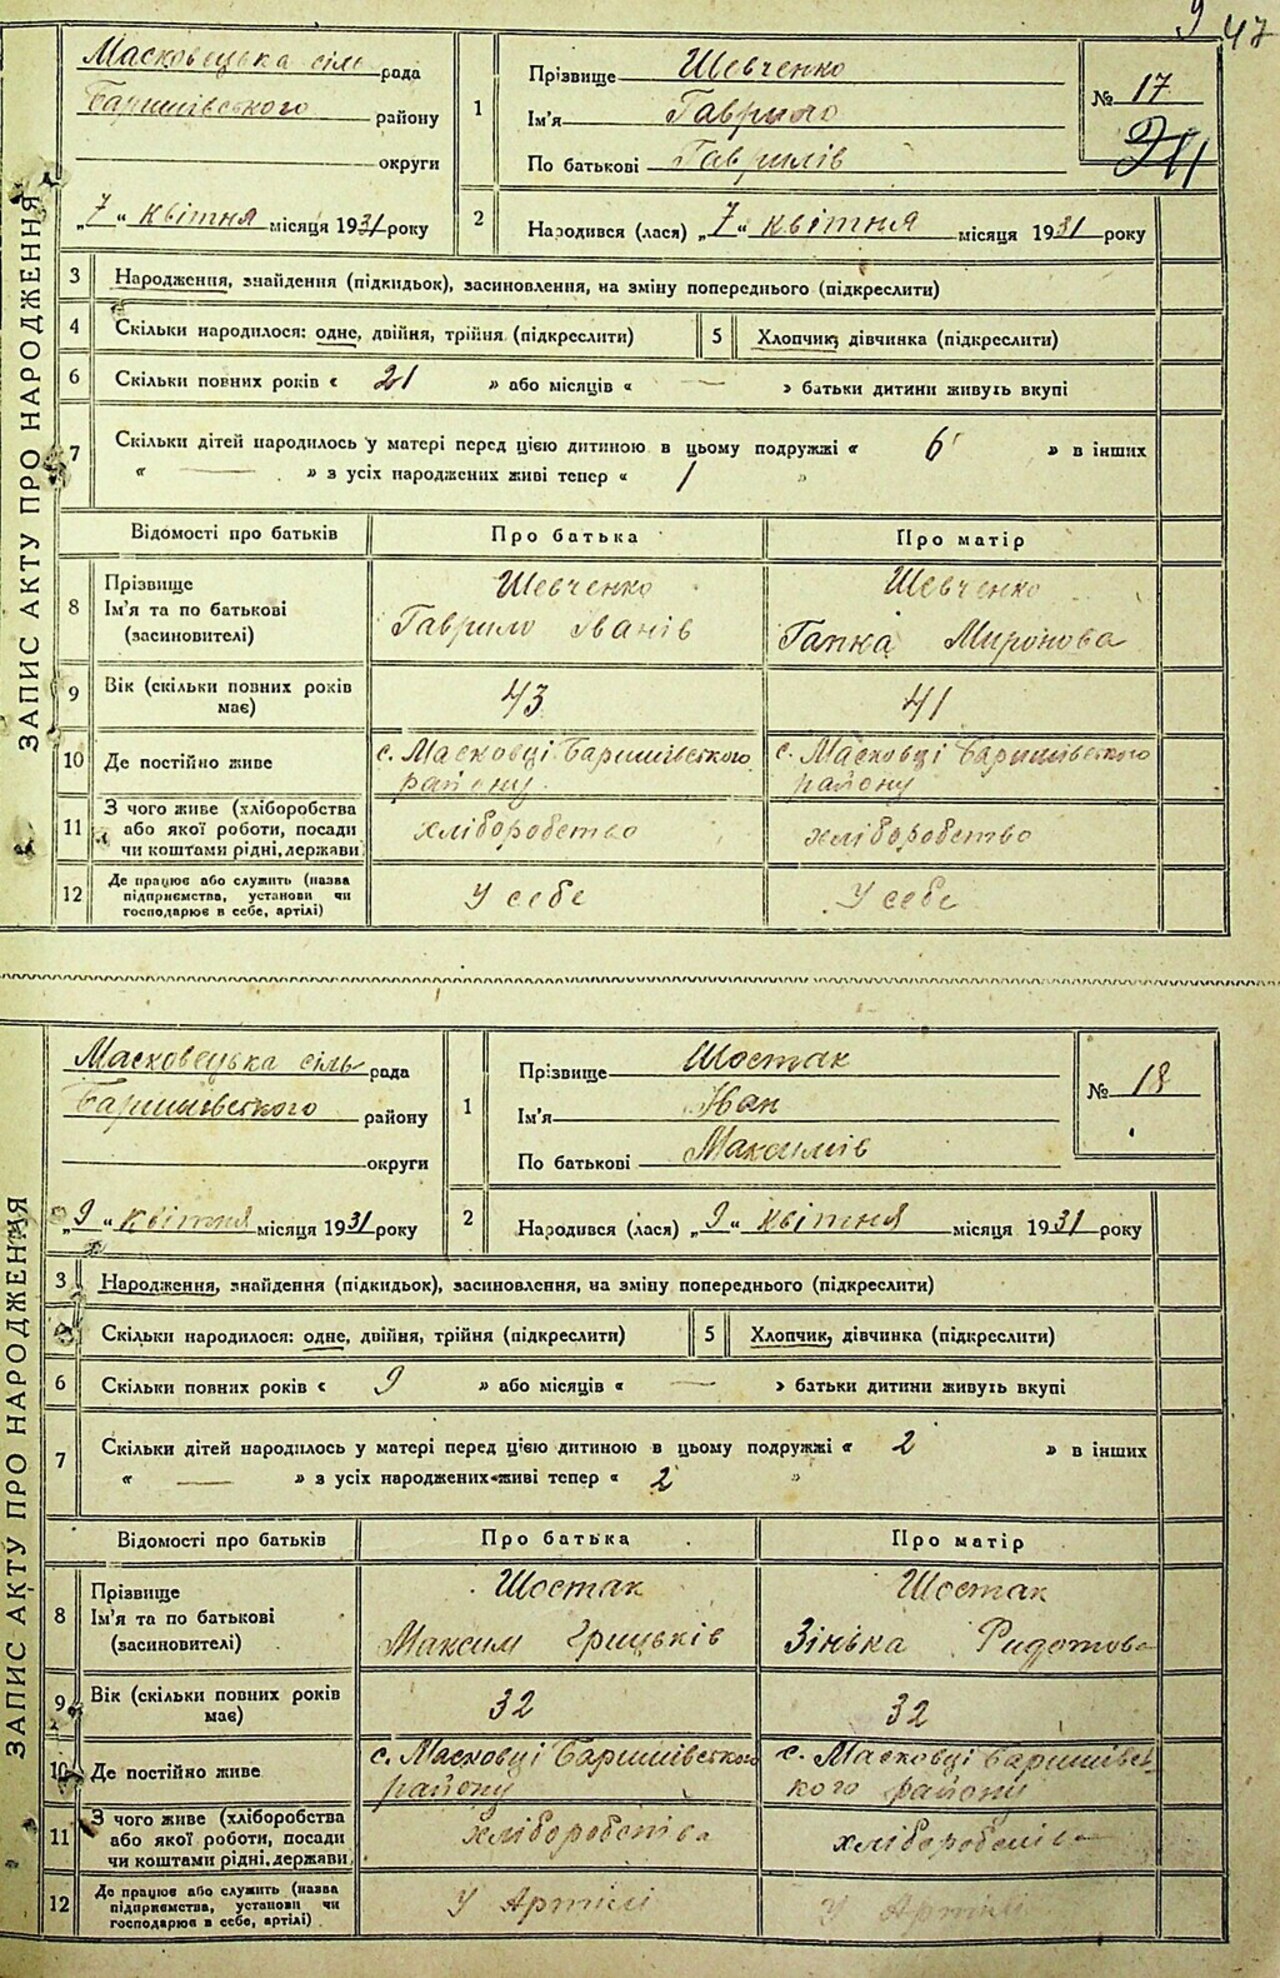 9 47
ЗАПИС АКТУ ПРО НАРОДЖЕННЯ
Масковецька сіль рада
Баришівського району
округи
„7“ квітня місяця 1931 року
1 Прізвище Шевченко
Ім'я Гаврило
По батькові Гаврилів
№ 17
2 Народився (лася) „7“ квітня місяця 1931 року
3 Народження, знайдення (підкидьок), засиновлення, на зміну попереднього (підкреслити)
4 Скільки народилося: одне, двійня, трійня (підкреслити) 5 Хлопчик, дівчинка (підкреслити)
6 Скільки повних років « 21 » або місяців « — » батьки дитини живуть вкупі
7 Скільки дітей народилось у матері перед цією дитиною в цьому подружжі « 6 » в інших
« — » з усіх народжених живі тепер « 1 »
Відомості про батьків Про батька Про матір
8 Прізвище Шевченко Шевченко
Ім'я та по батькові Гаврило Іванів Гапка Миронова
(засиновителі)
9 Вік (скільки повних років 43 41
має)
10 Де постійно живе с. Масковці Баришівського с. Масковці Баришівського
району району
11 З чого живе (хліборобства
або якої роботи, посади хліборобство хліборобство
чи коштами рідні, держави
12 Де працює або служить (назва
підприємства, установи чи У себе У себе
господарює в себе, артілі)
ЗАПИС АКТУ ПРО НАРОДЖЕННЯ
Масковецька сіль рада
Баришівського району
округи
„9“ квітня місяця 1931 року
1 Прізвище Шостак
Ім'я Іван
По батькові Максимів
№ 18
2 Народився (лася) „9“ квітня місяця 1931 року
3 Народження, знайдення (підкидьок), засиновлення, на зміну попереднього (підкреслити)
Скільки народилося: одне, двійня, трійня (підкреслити) 5 Хлопчик, дівчинка (підкреслити)
6 Скільки повних років « 9 » або місяців « — » батьки дитини живуть вкупі
7 Скільки дітей народилось у матері перед цією дитиною в цьому подружжі « 2 » в інших
« — » з усіх народжених живі тепер « 2 »
Відомості про батьків Про батька Про матір
8 Прізвище Шостак Шостак
Ім'я та по батькові Максим Грицьків Зінька
(засиновителі)
9 Вік (скільки повних років 32 32
має)
10 Де постійно живе с. Масковці Баришівського с. Масковці Баришівсь
району кого району
11 З чого живе (хліборобства
або якої роботи, посади хліборобства хліборобства
чи коштами рідні, держави
12 Де працює або служить (назва
підприємства, установи чи У Артілі У Артілі
господарює в себе, артілі)